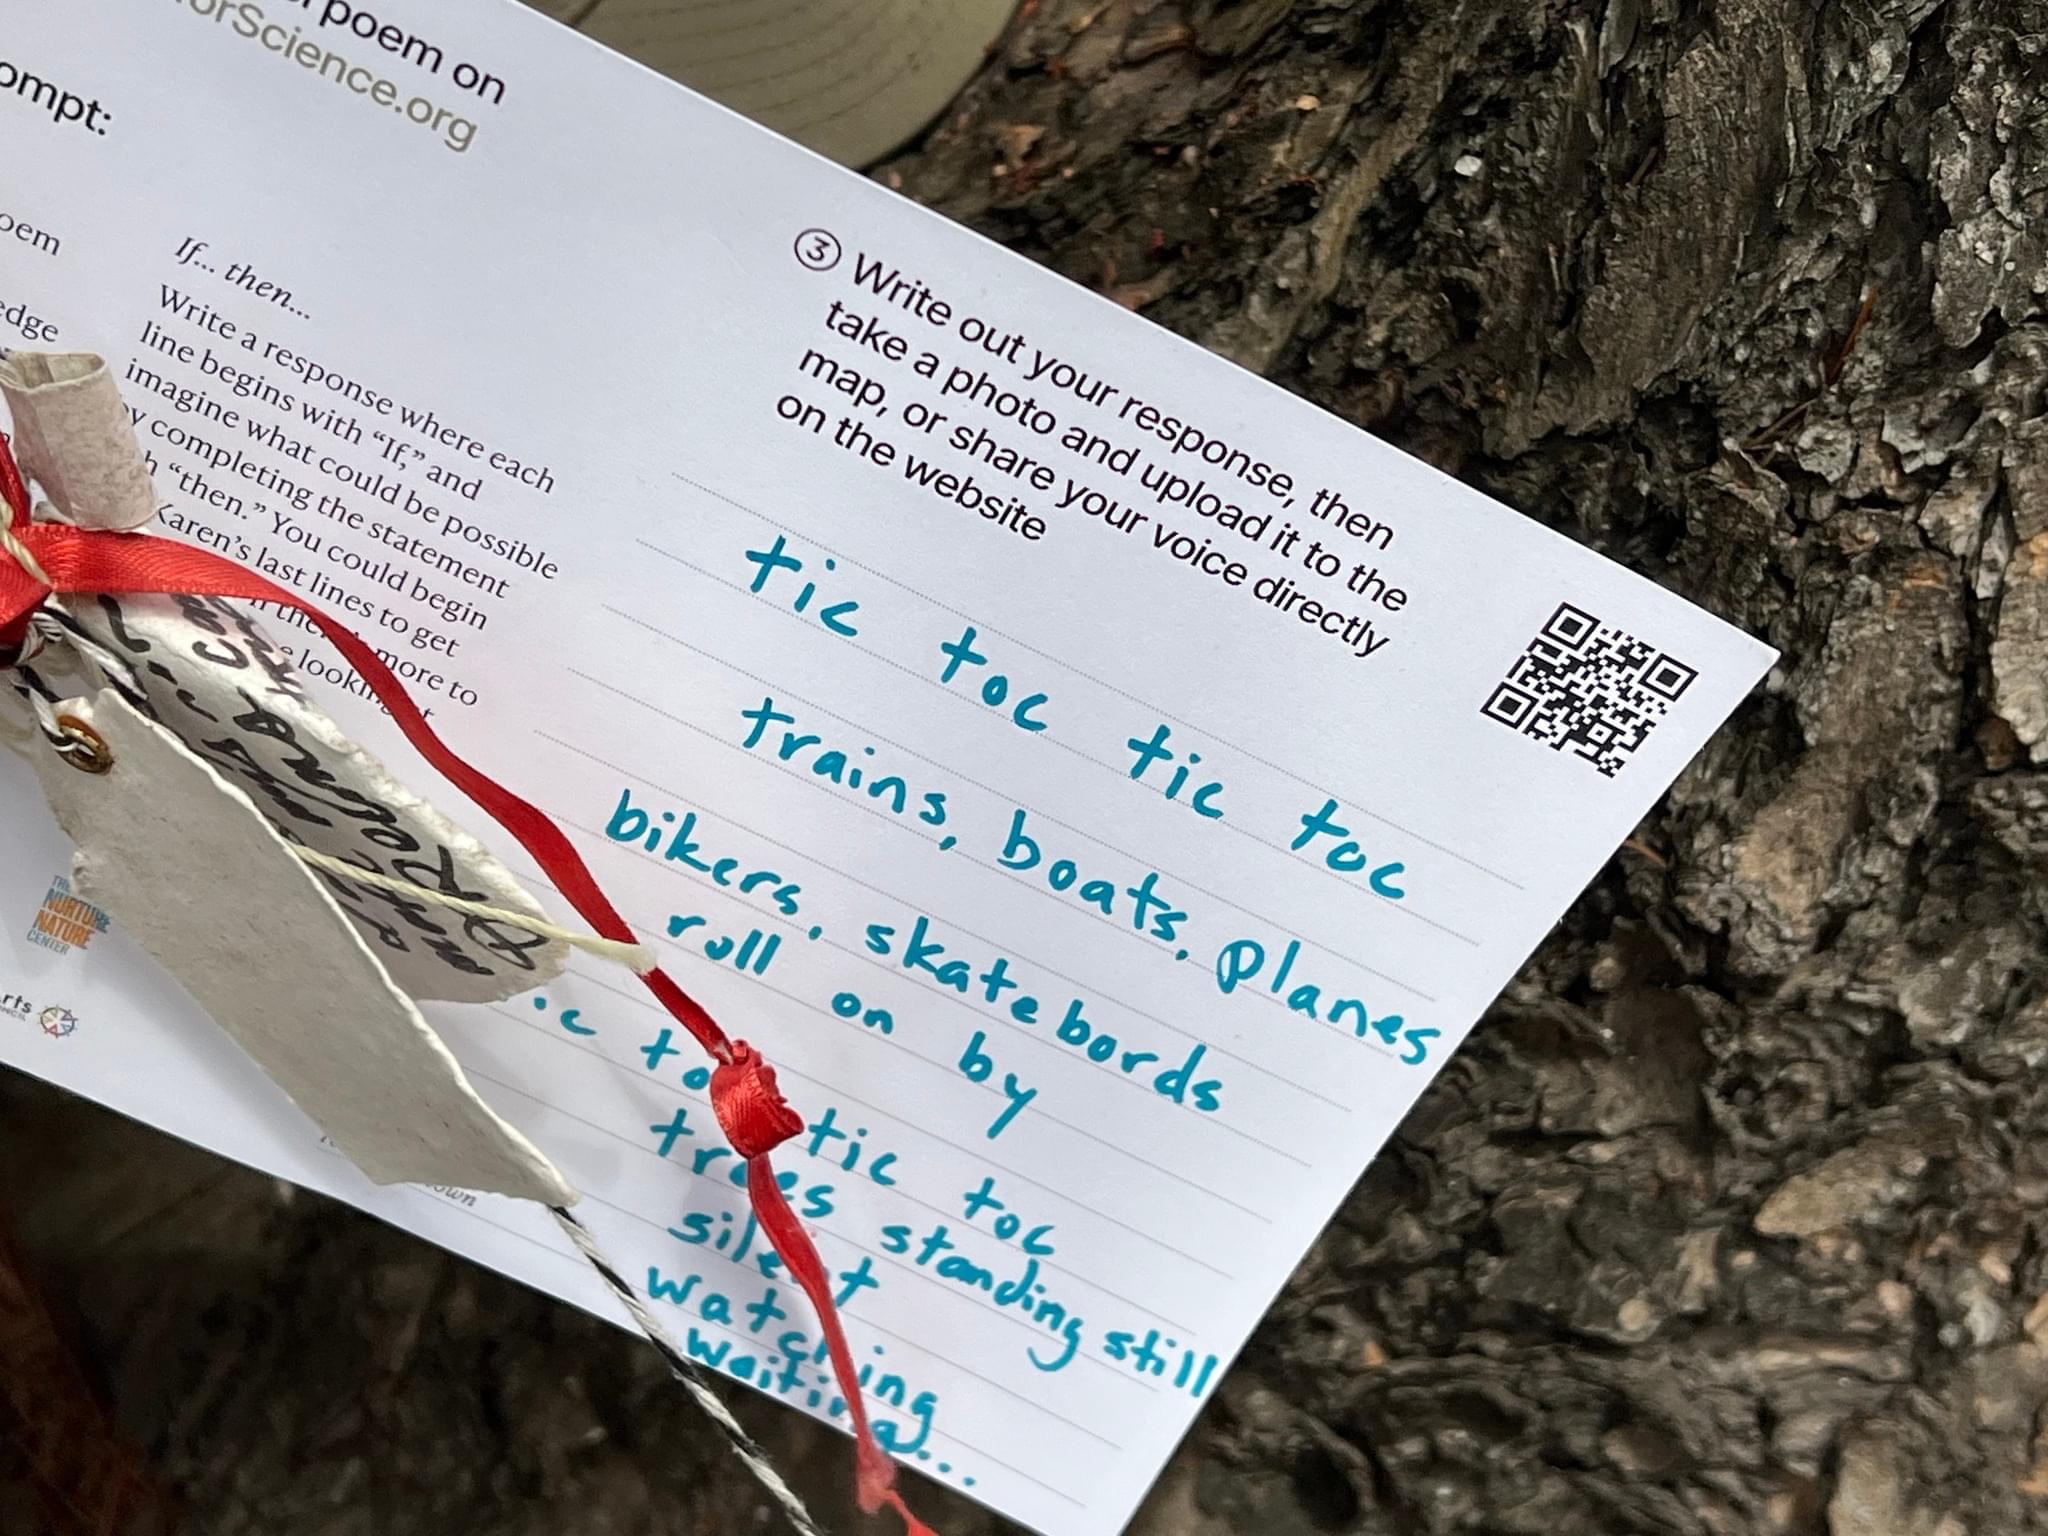 poem on
orScience.org
ompt:
oem
edge
If... then...
Write a response where each
line begins with “If,” and
imagine what could be possible
y completing the statement
h “then.” You could begin
Karen’s last lines to get
more to
looking
③ Write out your response, then
take a photo and upload it to the
map, or share your voice directly
on the website
tic toc tic toc
trains, boats, planes
bikers, skatebords
roll on by
ic to tic toc
trees standing still
silent
watching
waiting...
THE
NURTURE
NATURE
CENTER
rts